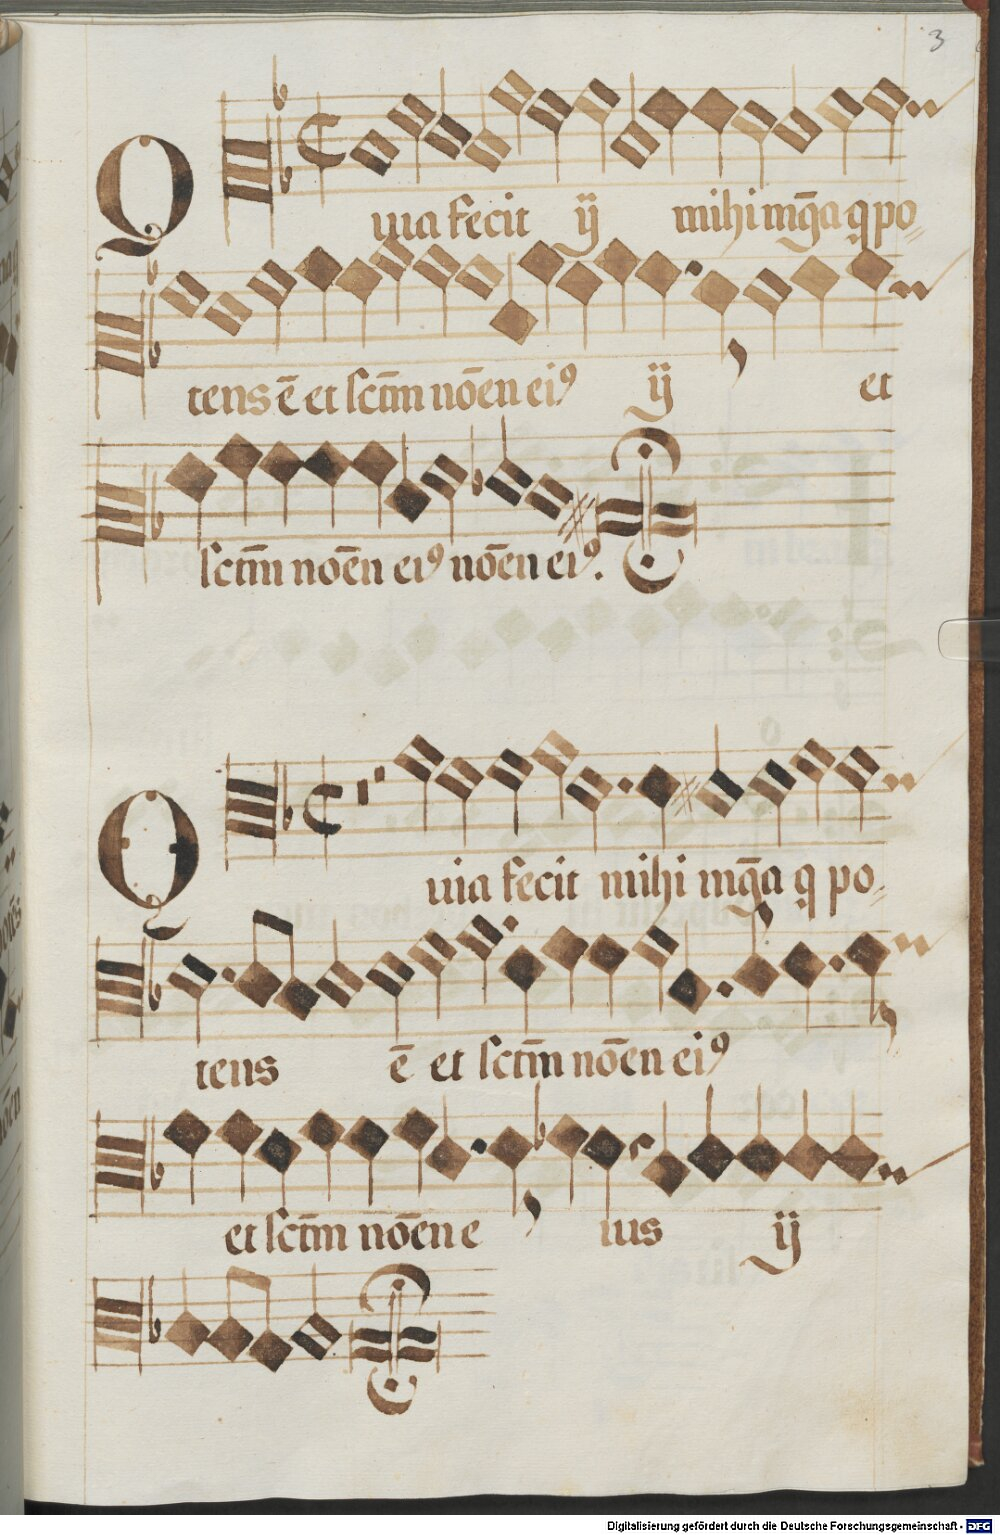 3
Quia fecit ij mihi mḡa q po
tens ē et sctm̄ nōen eiꝰ ij et
sctm̄ nōen eiꝰ nōen eiꝰ.
Quia fecit mihi mḡa q po
tens ē et sctm̄ nōen eiꝰ
et sctm̄ nōen e ius ij
Digitalisierung gefördert durch die Deutsche Forschungsgemeinschaft - DFG